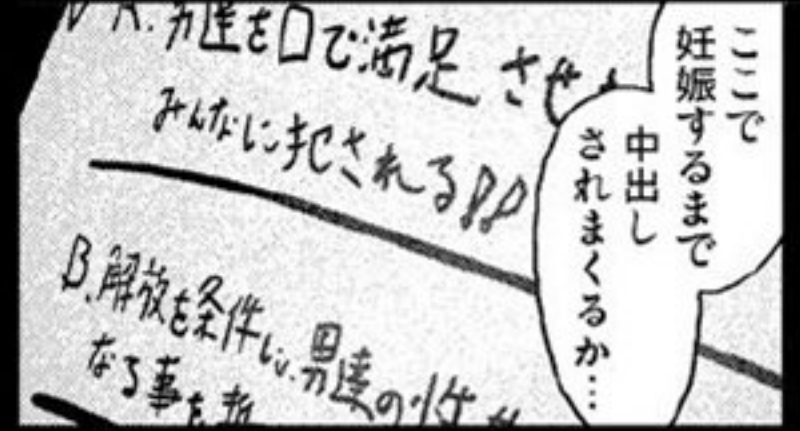 ここで
妊娠するまで
中出し
されまくるか…
A.男達を口で満足させ
みんなに犯される!!
B.解放を条件に、男達の性
なる事を